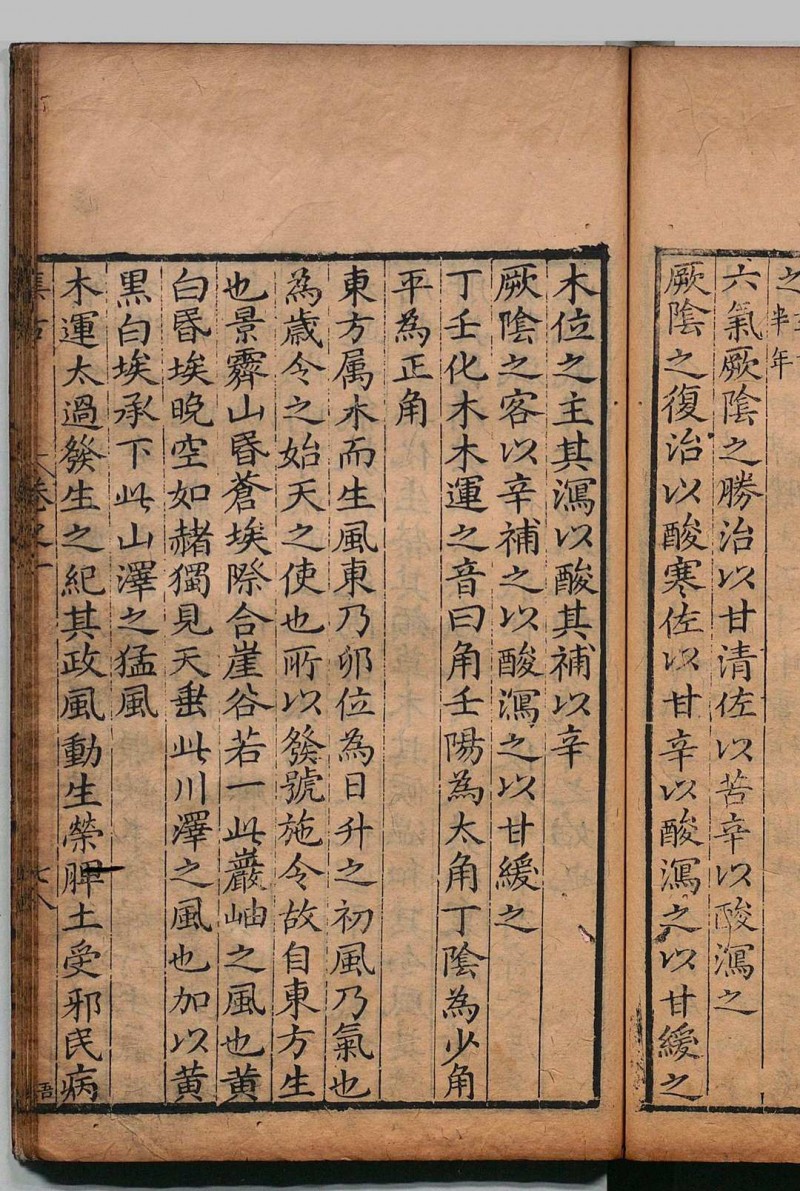 之
半年
六氣厥陰之勝治以甘清佐以苦辛以酸瀉之
厥陰之復治以酸寒佐以甘辛以酸瀉之以甘緩之
木位之主其瀉以酸其補以辛
厥陰之客以辛補之以酸瀉之以甘緩之
丁壬化木木運之音曰角壬陽為太角丁陰為少角
平為正角
東方属木而生風東乃卯位為日升之初風乃氣也
為歲令之始天之使也所以發號施令故自東方生
也景霽山昬蒼埃際合崖谷若一此巖岫之風也黄
白昬埃晚空如赭獨見天垂此川澤之風也加以黄
黒白埃承下此山澤之猛風
木運太過發生之紀其政風動生榮脾土受邪民病